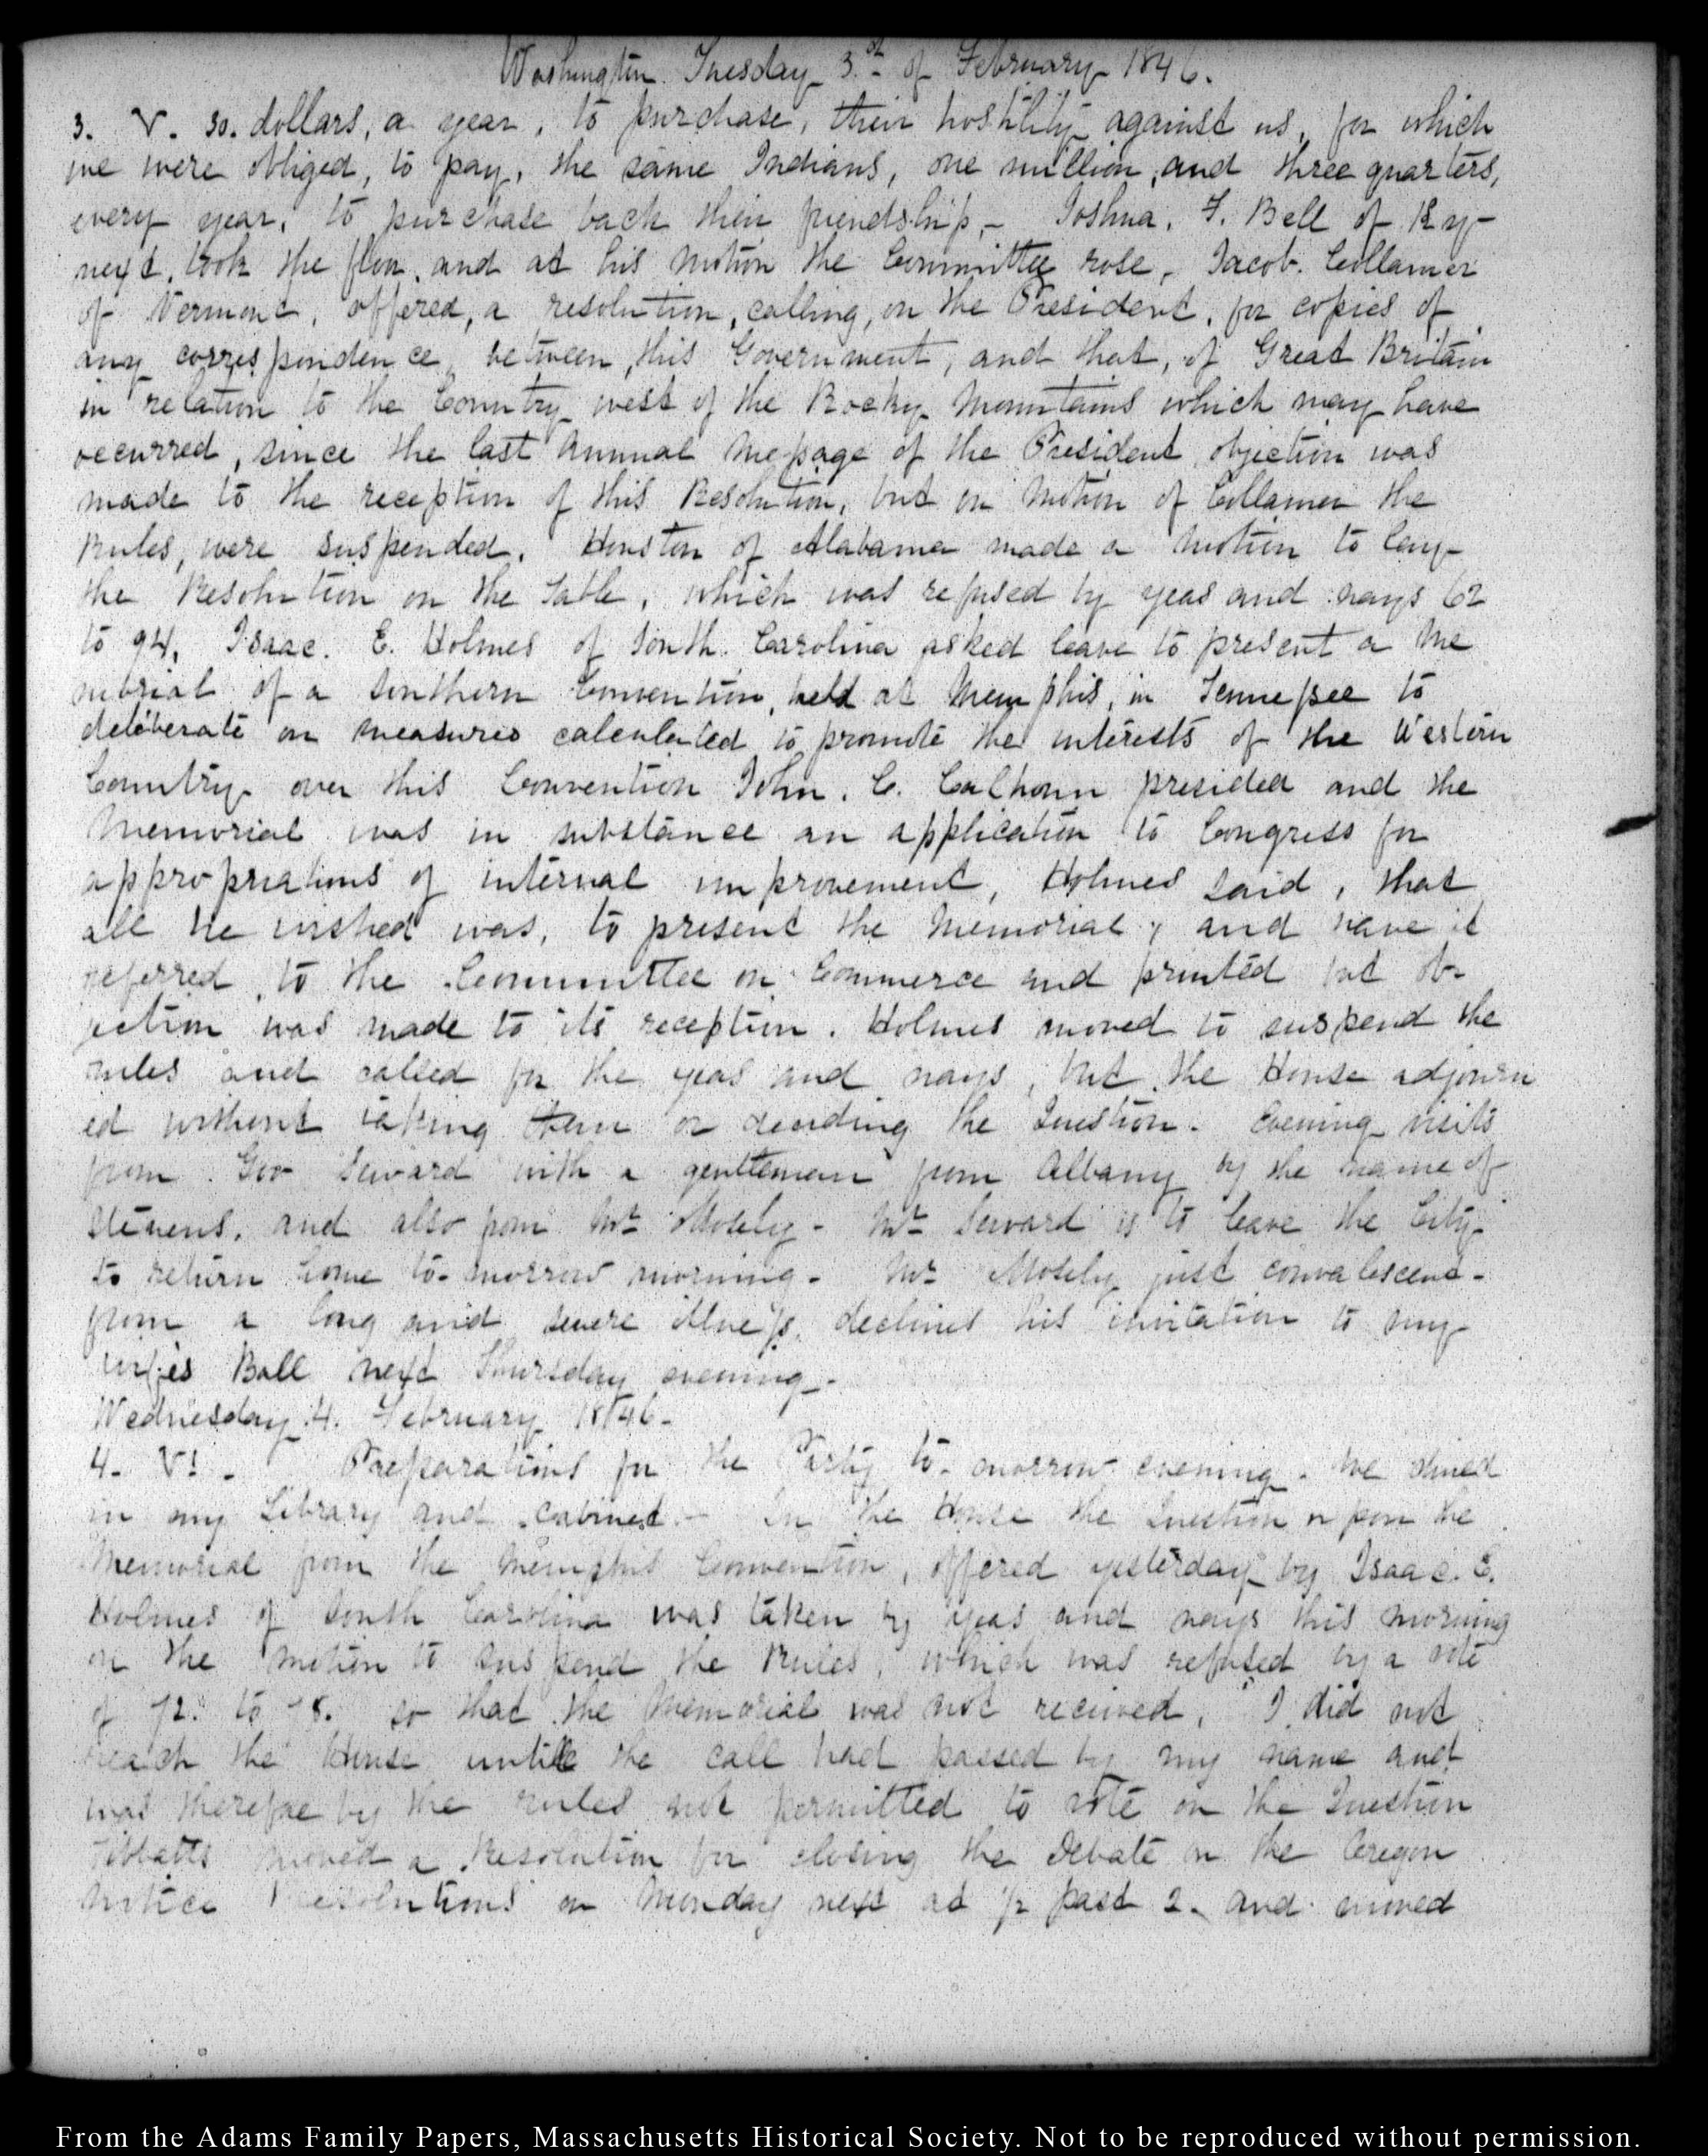 Washington Tuesday 3.d of February 1846.
3. V. 30. dollars, a year, to purchase, their hostility against us, for which
we were obliged, to pay, the same Indians, one million, and three quarters,
every year, to purchase back their friendship,- Joshua. F. Bell of Ky-
next, took the floor, and at his motion the Committee rose, Jacob. Collamer
of Vermont, offered, a resolution, calling, on the President, for copies of
any correspondence, between, this Government, and that, of Great Britain
in relation to the Country west of the Rocky Mountains which may have
occurred, since the last Annual Message of the President, objection was
made to the reception of this Resolution, but on Motion of Collamer the
Rules, were suspended. Houston of Alabama made a Motion to lay
the Resolution on the Table, which was refused by yeas and nays 62
to 94, Isaac. E. Holmes of South. Carolina asked leave to present a Me
morial of a Southern Convention, held at Memphis, in Tennessee to
deliberate on measures calculated to promote the interests of the Western
Country over this Convention John. C. Calhoun presided and the
Memorial was in substance an application to Congress for
appropriations of internal improvement, Holmes said, that
all he wished was, to present the Memorial, and have it
referred, to the Committee on Commerce and printed but ob-
jection was made to its reception. Holmes moved to suspend the
rules and called for the yeas and nays, but the House adjourn
ed without taking them or deciding the Question. Evening visits
from Gov Seward with a gentleman from Albany by the name of
Stevens, and also from Mr Mosely - Mr Seward is to leave the City
to return home to-morrow morning- Mr Mosely just convalescent-
from a long and severe illness, declines his invitation to my
wife's Ball next Thursday evening-.
Wednesday 4. February 1846-
4- VI. Preparations for the Party to-morrow evening. We dined
in my Library and cabinet.- In the House the Question upon the
Memorial from the Memphis Convention, offered yesterday by Isaac. E.
Holmes of South Carolina was taken by yeas and nays this morning
on the motion to suspend the Rules, which was refused by a vote
of 72. to 78. so that the Memorial was not received, I did not
reach the House untill the call had passed by my name and
was therefore by the rules not permitted to vote on the Question
Tibbatts moved a Resolution for closing the Debate on the Oregon
Notice Resolutions on Monday next at 1/2 past 2. and moved
From the Adams Family Papers, Massachusetts Historical Society. Not to be reproduced without permission.